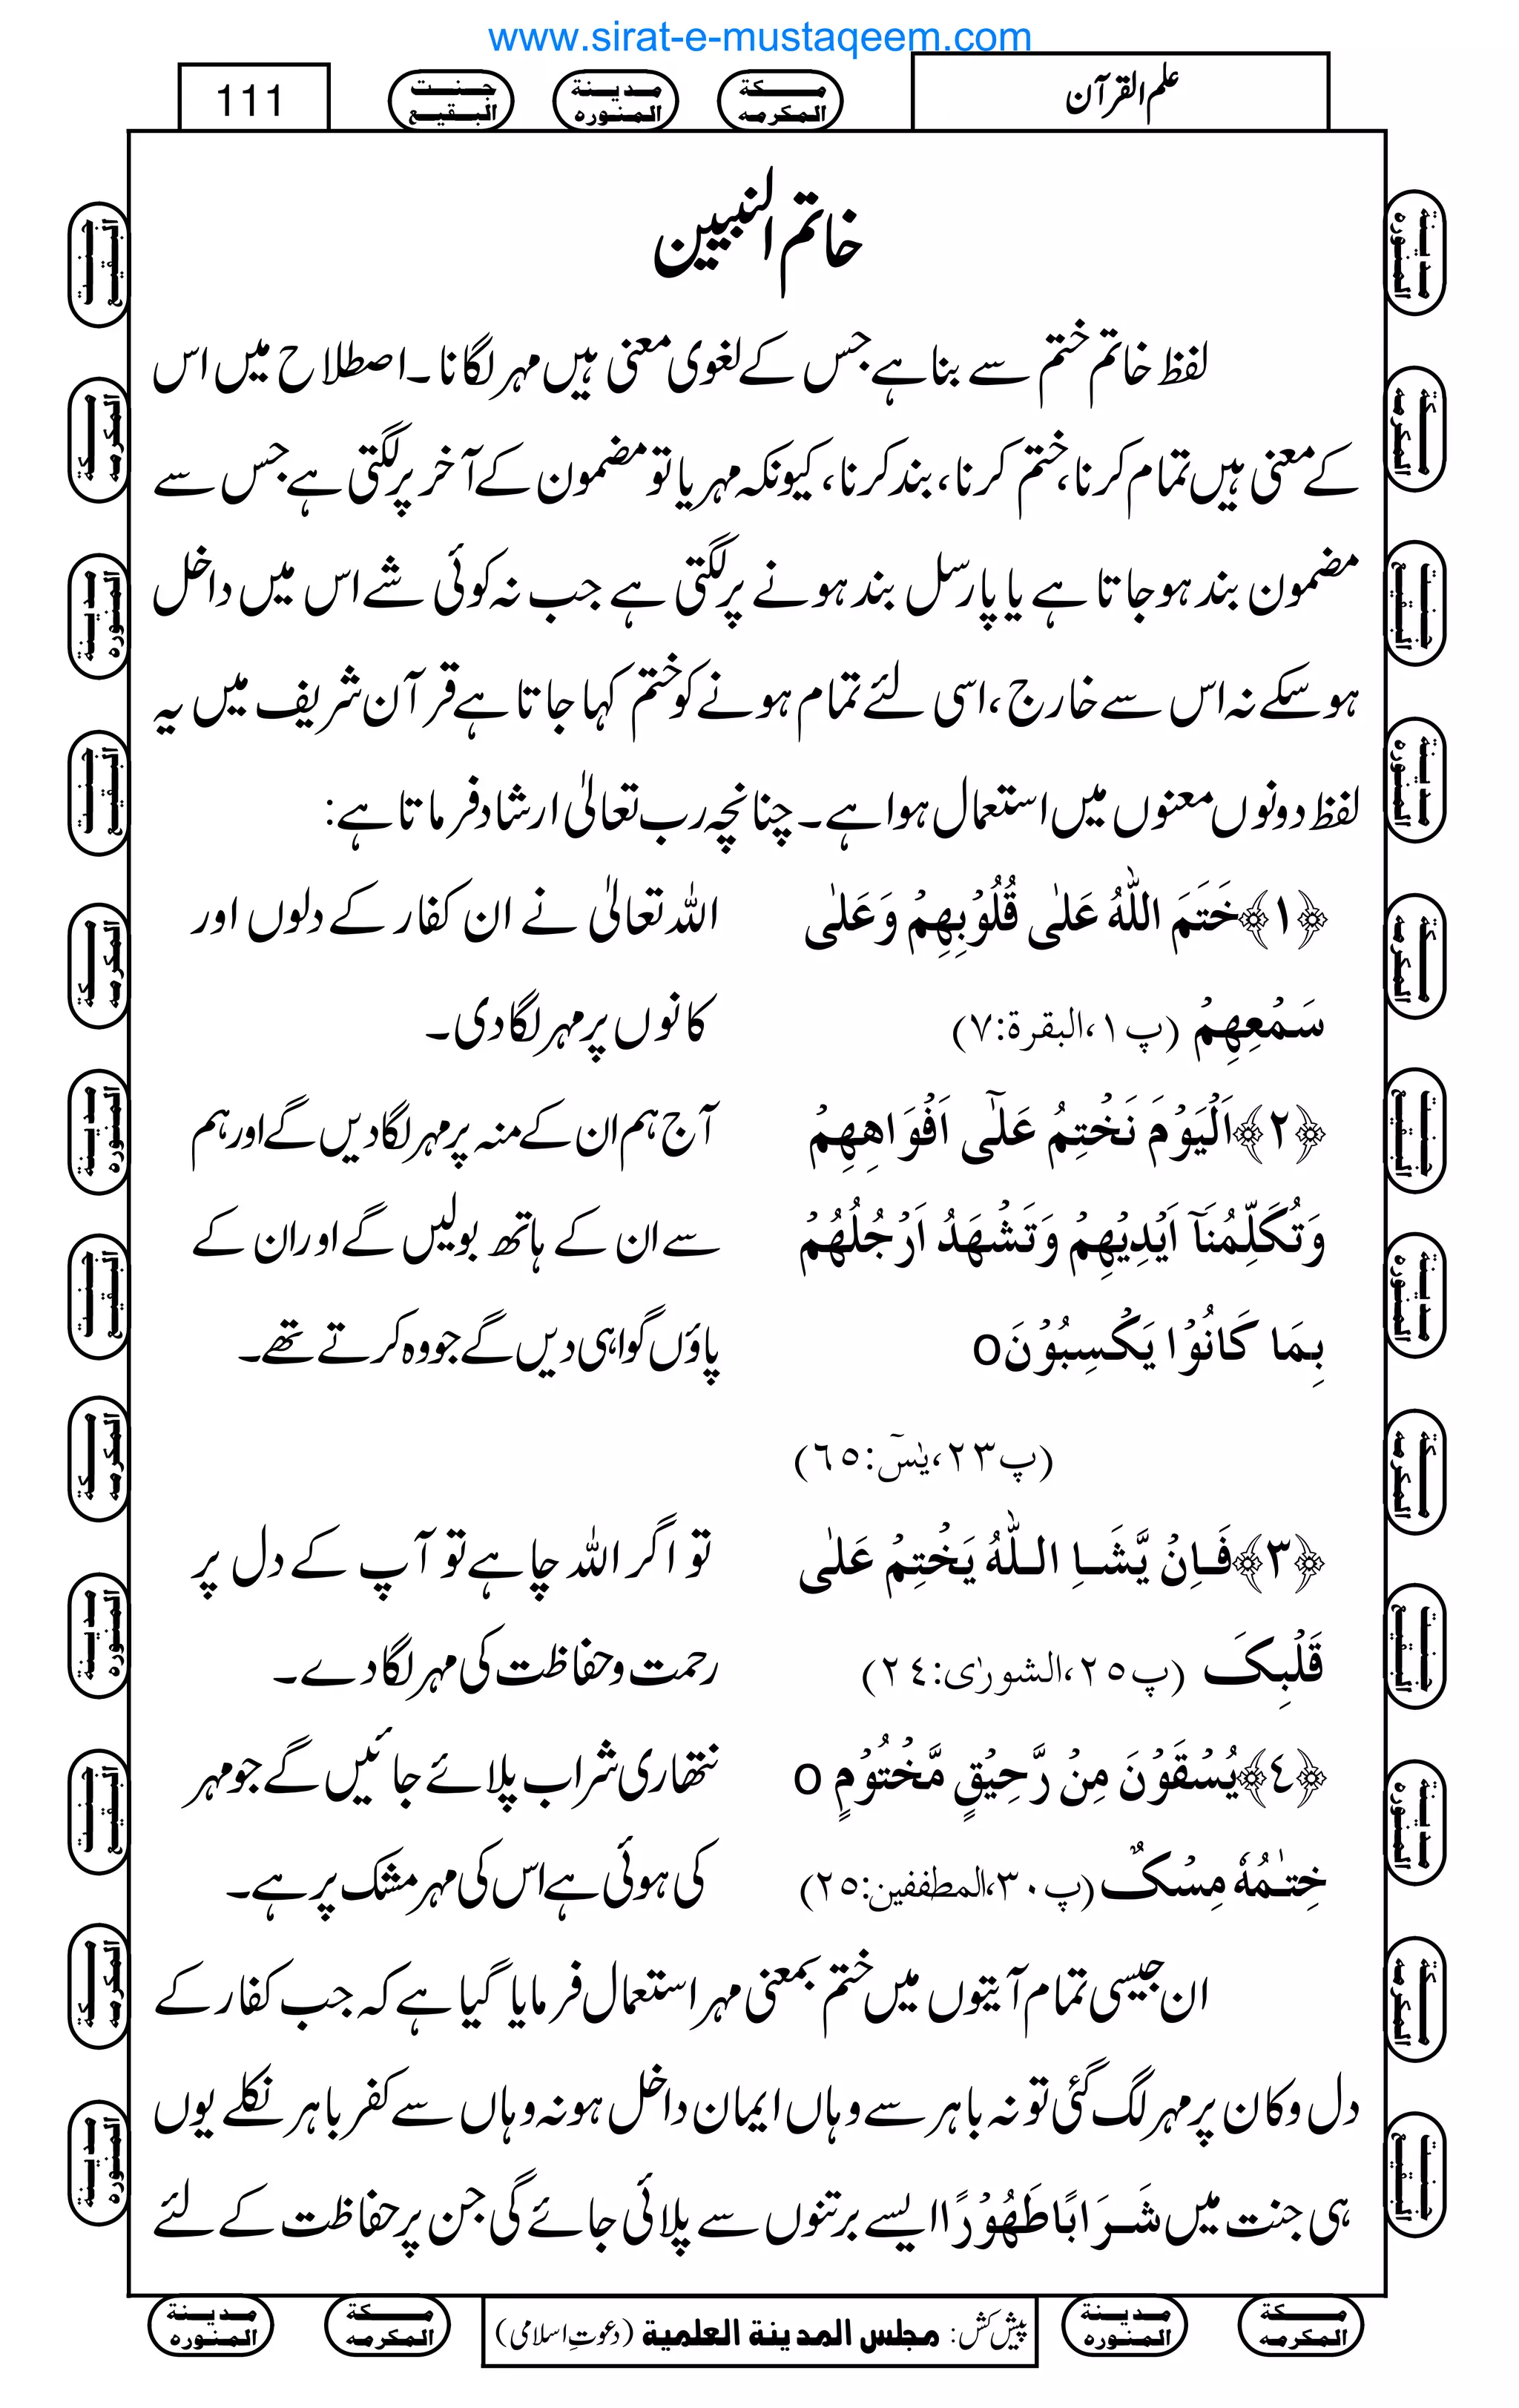 www.sirat-e-mustaqeem.com
علم القرآن
مـكة المكرمه
مدينة المنوره
جنت البقيع
111
خاتم النبیین
لفظ خاتم ختم سے بنا ہے جس کے لغوی معنی ہیں مہر لگانا۔ اصطلاح میں اس
کے معنی ہیں تمام کرنا، ختم کرنا، بند کرنا، کیونکہ مہر یا تو مضمون کے آخر پر لگتی ہے جس سے
مضمون بند ہوجاتا ہے یا پارسل بند ہونے پر لگتی ہے جب نہ کوئی شے اس میں داخل
ہوسکے نہ اس سے خارج، اسی لئے تمام ہونے کو ختم کہا جاتا ہے قرآن شریف میں یہ
لفظ دونوں معنوں میں استعمال ہوا ہے۔ چنانچہ رب تعالیٰ ارشاد فرماتا ہے:
﴿١﴾خَتَمَ اللّٰهُ عَلٰى قُلُوْبِهِمْ وَعَلٰى اللہ تعالیٰ نے ان کفار کے دلوں اور
سَمْعِهِمْ (پ١،البقرة:٧) کانوں پر مہر لگادی۔
﴿٢﴾اَلْيَوْمَ نَخْتِمُ عَلٰٓى اَفْوَاهِهِمْ آج ہم ان کے منہ پر مہر لگادیں گے اور ہم
وَتُكَلِّمُنَآ اَيْدِيْهِمْ وَتَشْهَدُ اَرْجُلُهُمْ سے ان کے ہاتھ بولیں گے اور ان کے
بِمَا كَانُوْا يَكْسِبُوْنَo پاؤں گواہی دیں گے جو وہ کرتے تھے۔
(پ٢٣،یٰسٓ:٦٥)
﴿٣﴾فَاِنْ يَّشَاِ اللّٰهُ يَخْتِمْ عَلٰى تو اگر اللہ چاہے تو آپ کے دل پر
قَلْبِکَ (پ٢٥،الشورٰی:٢٤) رحمت وحفاظت کی مہر لگا دے۔
﴿٤﴾يُسْقَوْنَ مِنْ رَّحِيْقٍ مَّخْتُوْمٍ o نتھاری شراب پلائے جائیں گے جو مہر
خِتٰمُهٗ مِسْکٌ (پ٣٠،المطففین:٢٥) کی ہوئی ہے اس کی مہر مشک پر ہے۔
ان جیسی تمام آیتوں میں ختم بمعنی مہر استعمال فرمایا گیا ہے کہ جب کفار کے
دل وکان پر مہر لگ گئی تو نہ باہر سے وہاں ایمان داخل ہو نہ وہاں سے کفر باہر نکلے یوں
ہی جنت میں شَرَابًا طَهُوْرًا ایسے برتنوں سے پلائی جائے گی جن پر حفاظت کے لئے
پیش کش: مجلس المدينة العلمية (دعوتِ اسلامی)